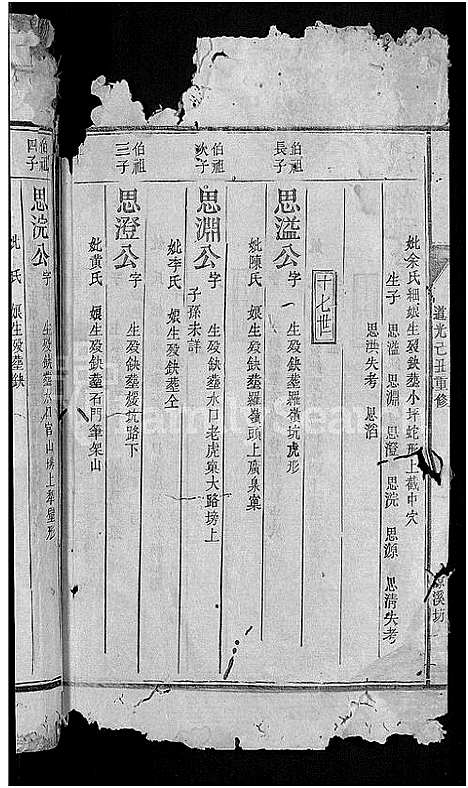 道光己丑重修
溪坊
妣余氏細娘生歿缺葬小坪蛇形上截中穴
生子 思溢 思淵 思澄 思浣 思源 思清失考
思洪失考 思滔
十七世
伯祖長子
思溢公 字一 生歿缺葬羅嶺坑虎形
妣陳氏 娘生歿缺葬羅嶺頭上廣泉窠
伯祖次子
思淵公 字 生歿缺葬水口老虎窠大路塝上
子孫未詳
妣李氏 娘生歿缺葬仝
伯祖三子
思澄公 字 生歿缺葬 坑路下
妣黃氏 娘生歿缺葬石門筆架山
伯祖四子
思浣公 字 生歿缺葬水口官山塝上 壁形
妣 氏 娘生歿缺